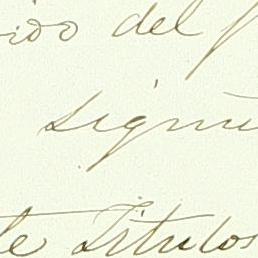 ido del
sigui
te Titulos